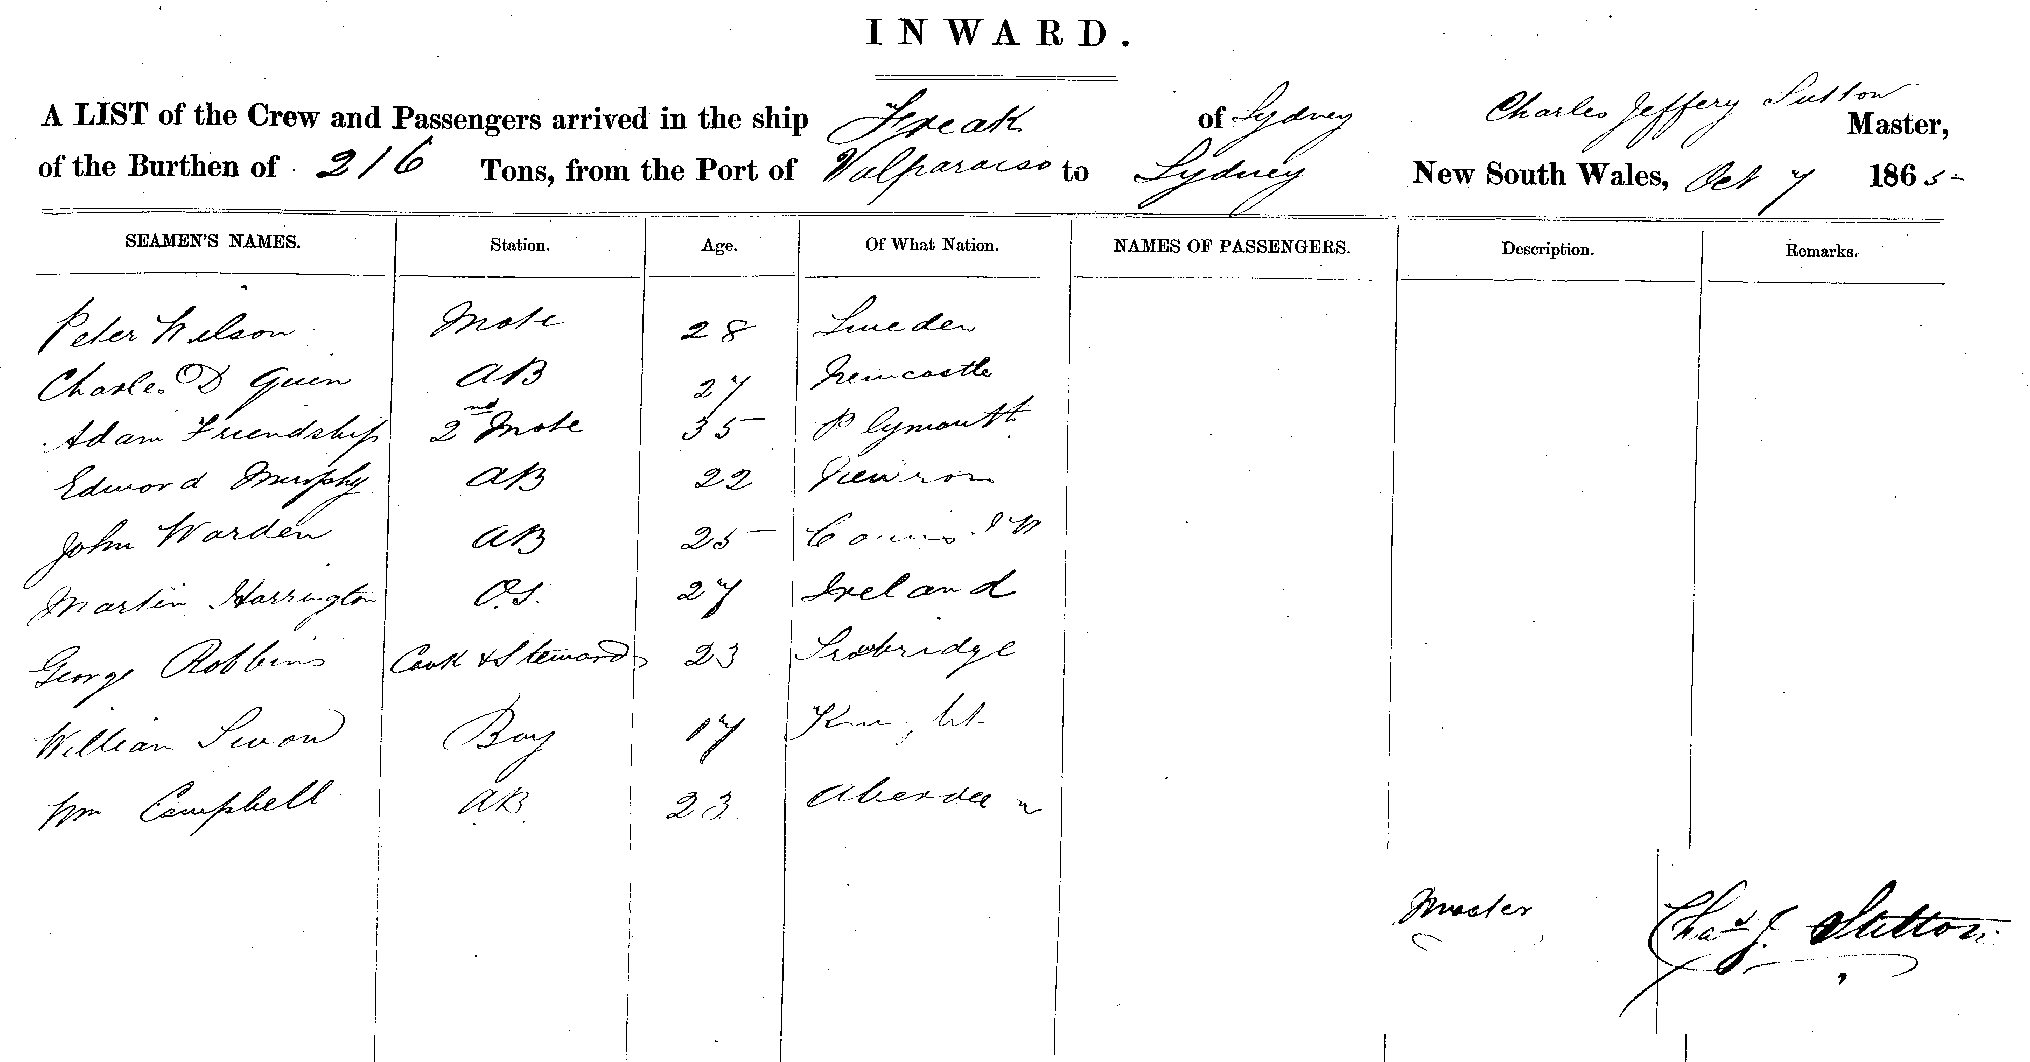 INWARD.
A LIST of the Crew and Passengers arrived in the ship Freak of Sydney Charles Jeffery Sutton Master,
of the Burthen of 216 Tons, from the Port of Valparaiso to Sydney New South Wales, Oct 7 1865
SEAMEN'S NAMES. Station. Age. Of What Nation. NAMES OF PASSENGERS. Description. Remarks.
Peter Wilson Mate 28 Sweden
Charles D Guin AB 27 Newcastle
Adam Friendship 2nd Mate 35 Plymouth
Edward Murphy AB 22
John Warden AB 25
Martin Harrington O.S. 27 Ireland
George Robbins Cook & Steward 23 Trowbridge
William Swan Boy 17
Wm Campbell AB 23 Aberdeen
Master Chas J. Sutton